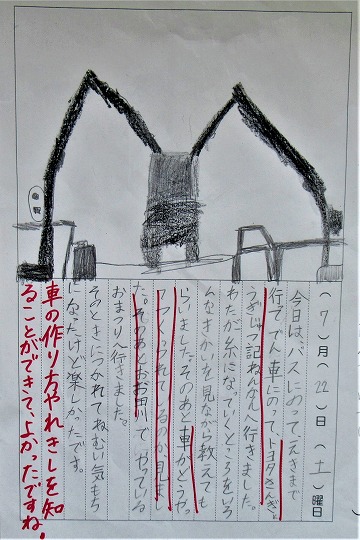 (7)月(22)日(土)曜日
今日は、バスにのって、えきまで
行ってでん車にのって、トヨタさんぎょ
うぎじゅつ記ねんかんに行きました。
わたが糸になっていくところをいろ
んなきかいを見ながら教えても
らいました。そのあと車がどうや
ってつくられているのか見まし
た。そのあとおお田川でやっている
おまつりへ行きました。
そのときにつかれてねむい気もち
になったけど楽しかったです。
車の作り方やれきしを知
ることができて、よかったですね。